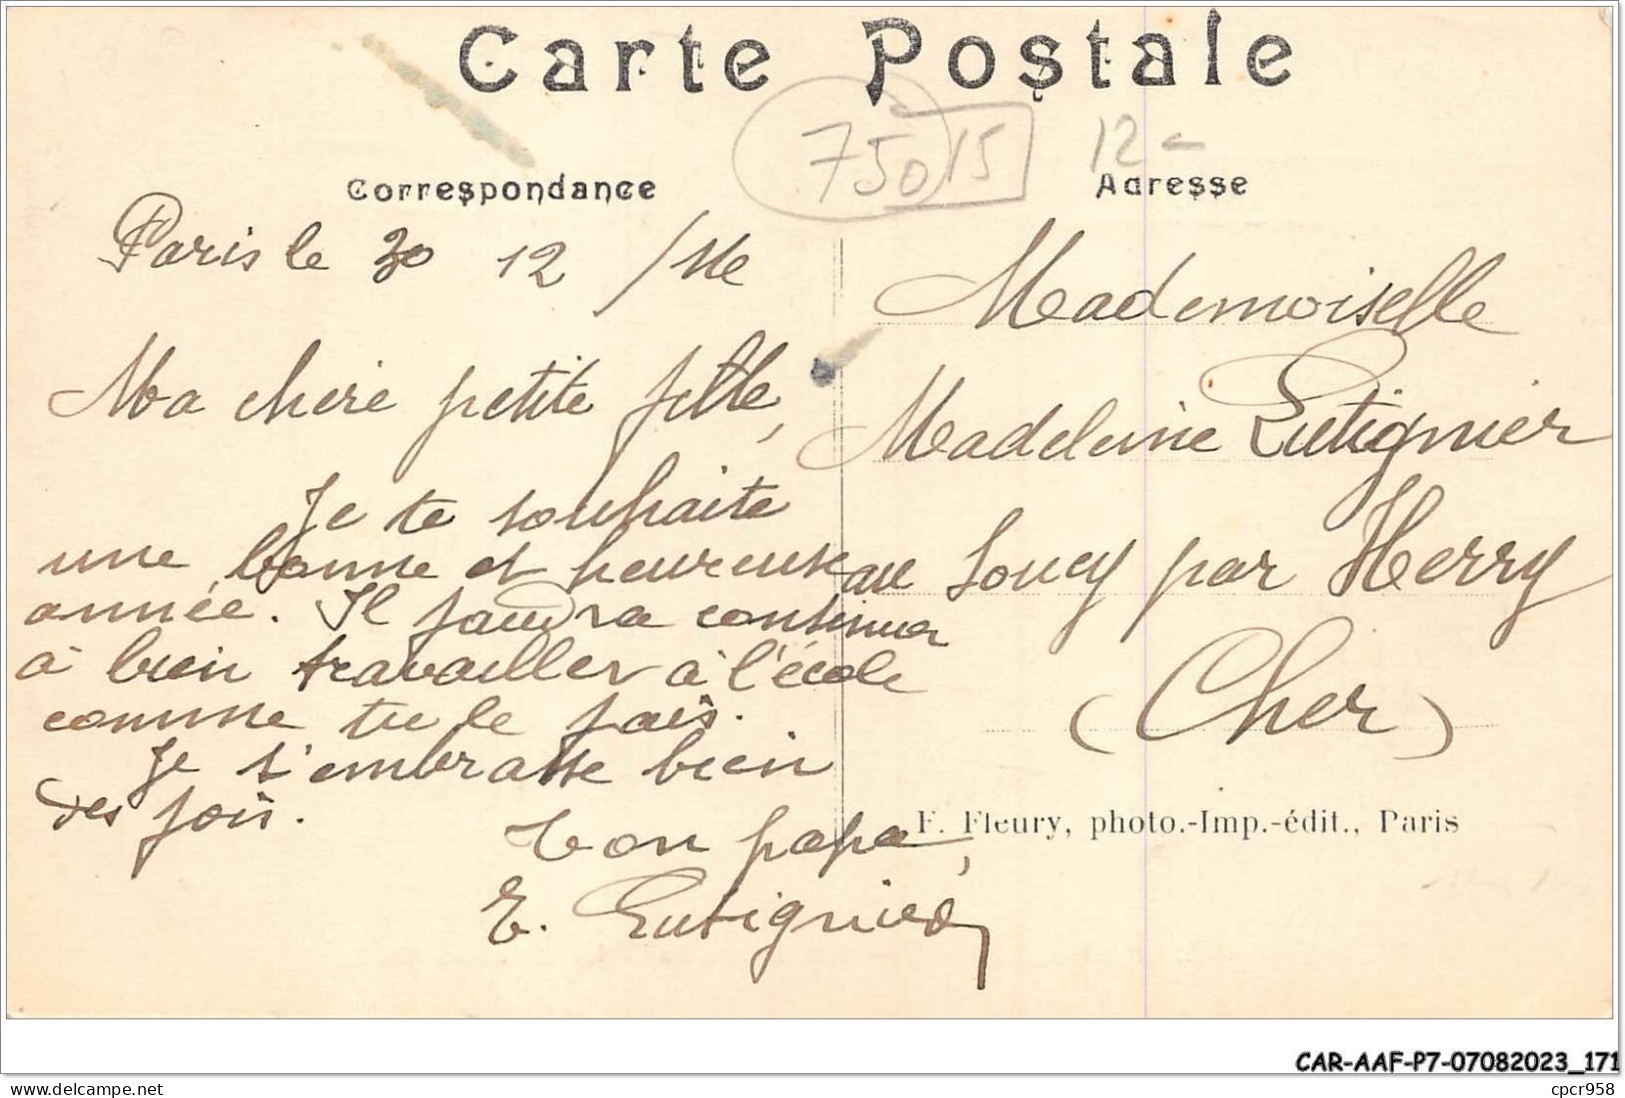 Carte Postale
75015
12-
Correspondance
Adresse
Paris le 30 12
Ma chère petite fille,
Je te souhaite
une bonne et heureuse
année. Il faudra continuer
à bien travailler à l'école
comme tu le fais.
Je t'embrasse bien
des fois.
ton papa,
E. Lutignier
Mademoiselle
Madeleine Lutignier
au Soucy par Herry
(Cher)
F. Fleury, photo.-Imp.-édit., Paris
CAR-AAF-P7-07082023_171
delcampe.net
cpcr958